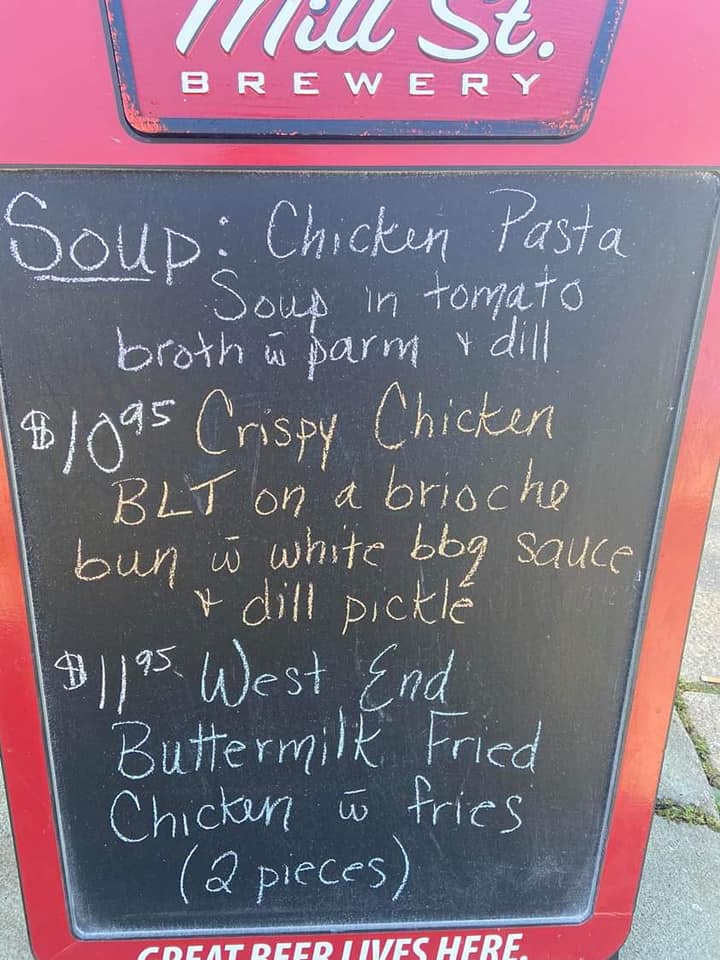 Mill St.
BREWERY
Soup: Chicken Pasta
Soup in tomato
broth w̄ parm + dill
$10.95 Crispy Chicken
BLT on a brioche
bun w̄ white bbq sauce
+ dill pickle
$11.95 West End
Buttermilk Fried
Chicken w̄ fries
(2 pieces)
GREAT BEER LIVES HERE.